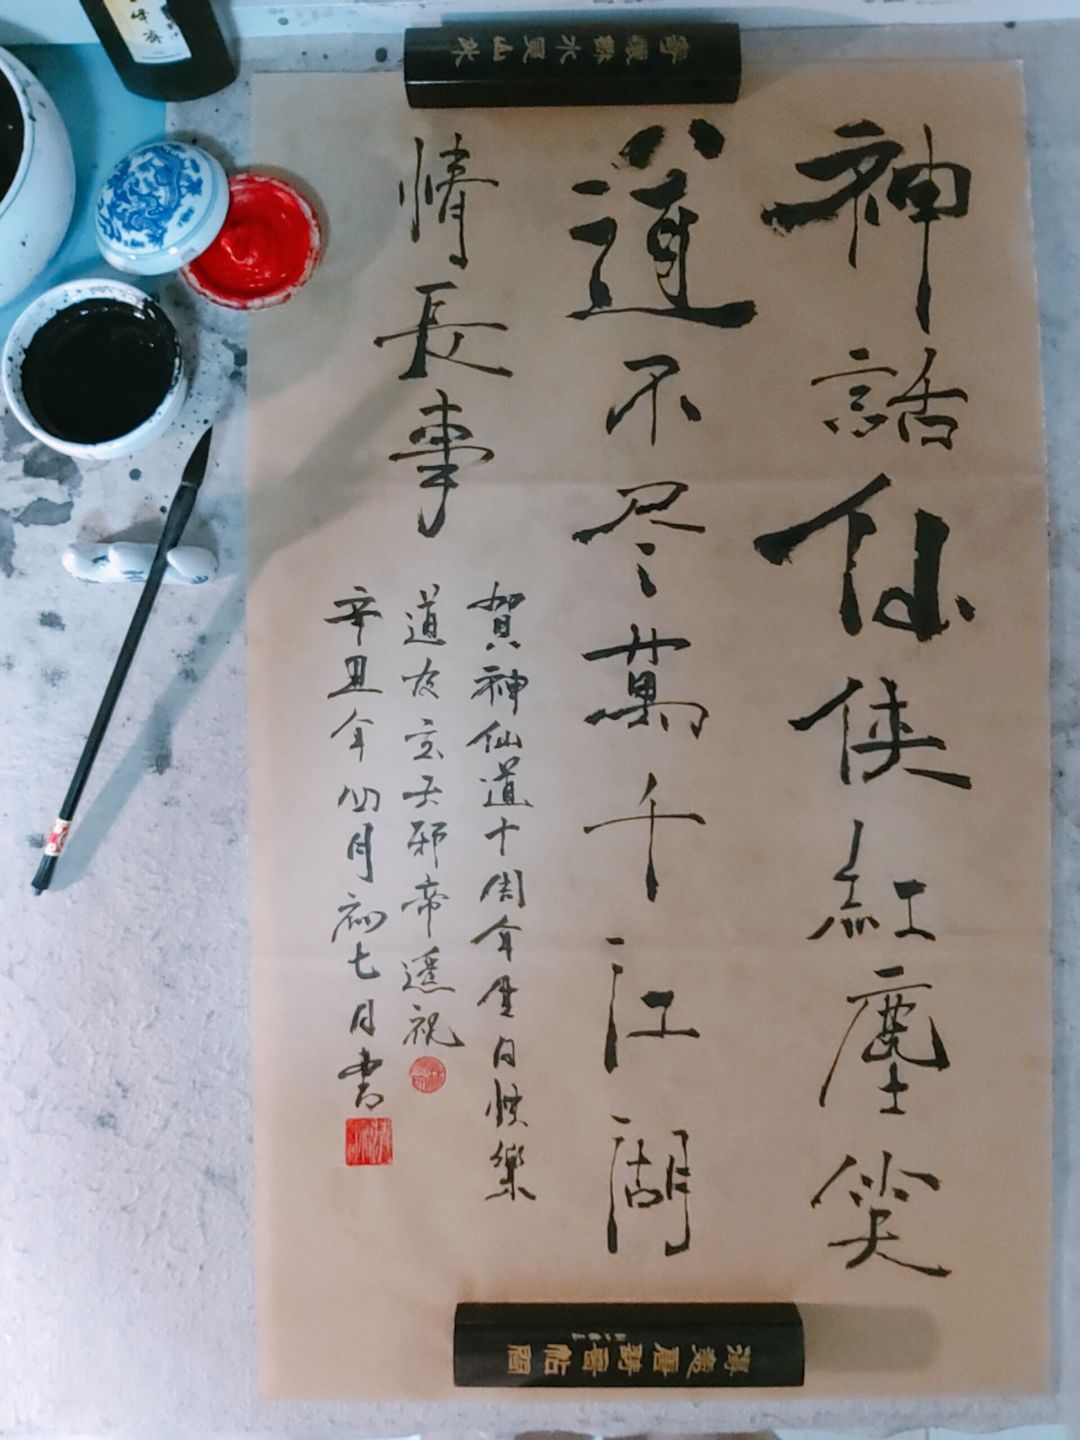 神話仙俠紅塵笑
道不尽萬千江湖
情長事
賀神仙道十周年生日快樂
道友玄天邪帝遥祝
辛丑年四月初七日書